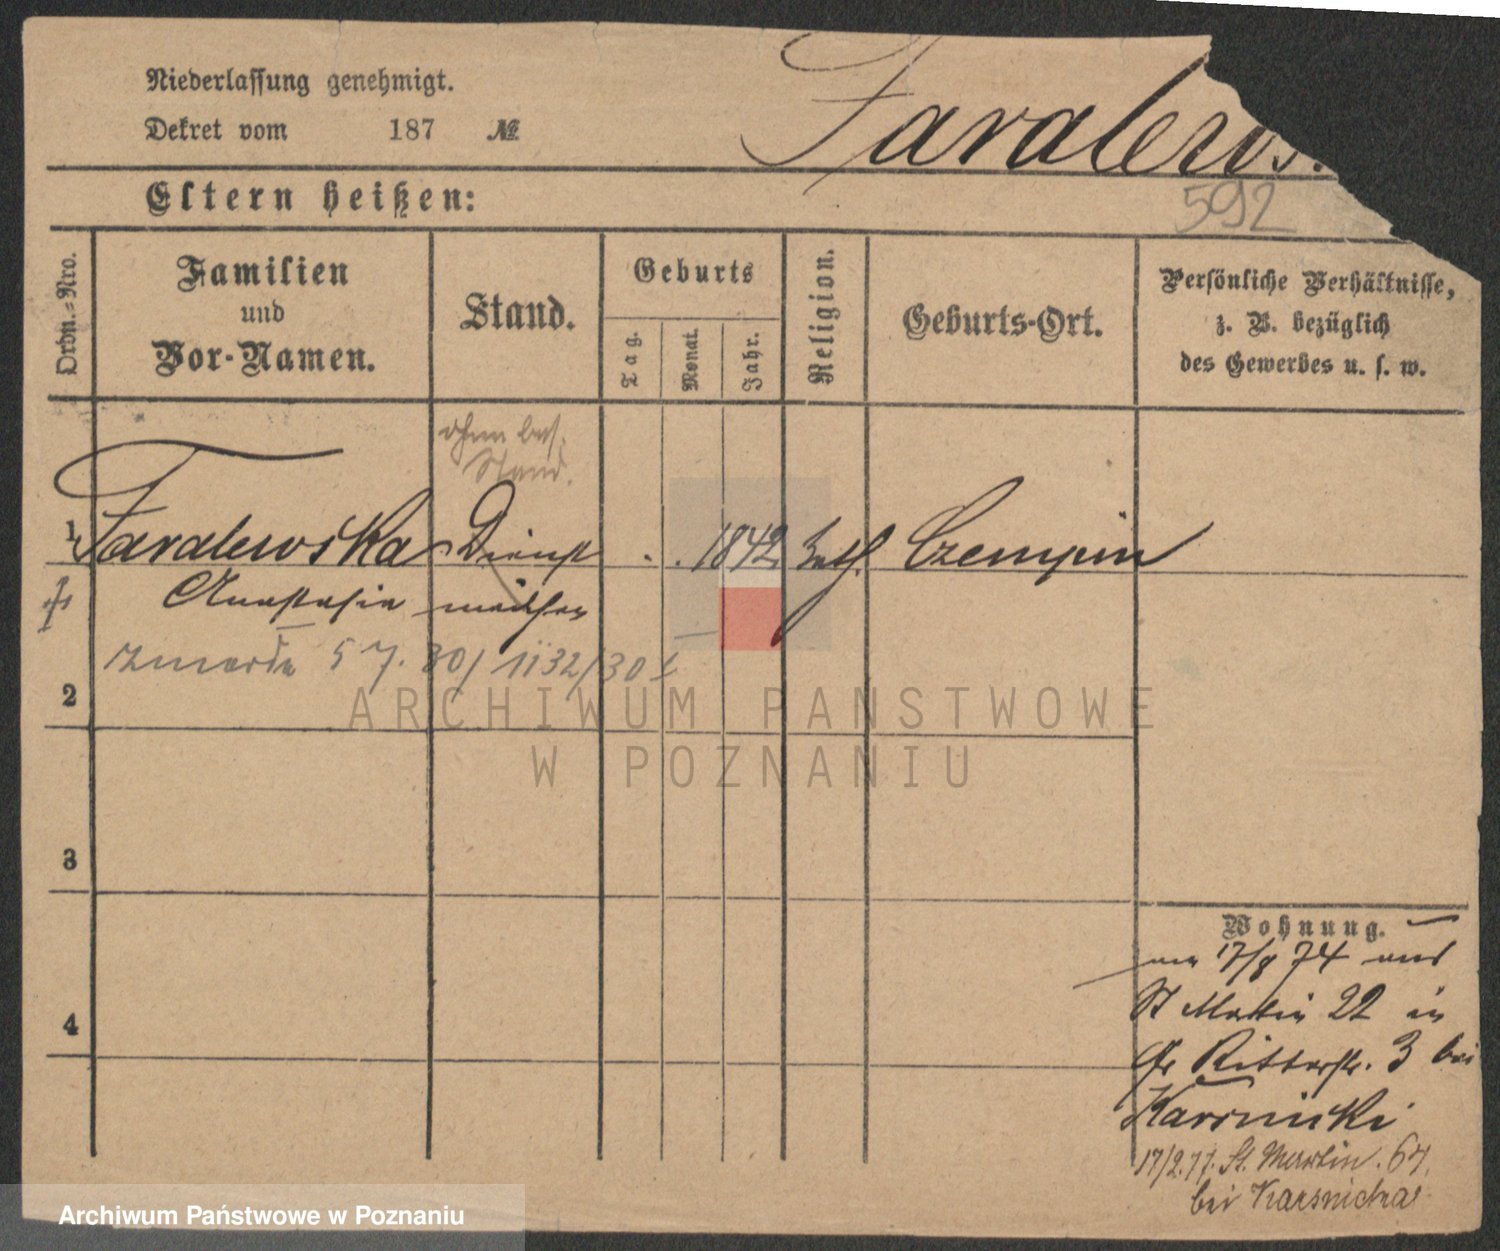 Niederlassung genehmigt.
Dekret vom 187 №
Faralews
592
Eltern heißen:
Ordn.-Nro.
Familien
und
Vor-Namen.
Stand.
Geburts
Tag.
Monat.
Jahr.
Religion.
Geburts-Ort.
Persönliche Verhältnisse,
z. B. bezüglich
des Gewerbes u. s. w.
ohne bes.
Stand.
1 Faralewska Dienst . . 1842 kath. Czempin
Anastasia mädchen
zmarła 5 7. 30/ 1132/30
2
ARCHIWUM PAŃSTWOWE
W POZNANIU
3
4
Wohnung.
17/8 74 aus
St Martin 22 in
Gr Ritterstr. 3 bei
Karsnicki
17/2.77. St. Martin. 67.
bei Karsnicka
Archiwum Państwowe w Poznaniu